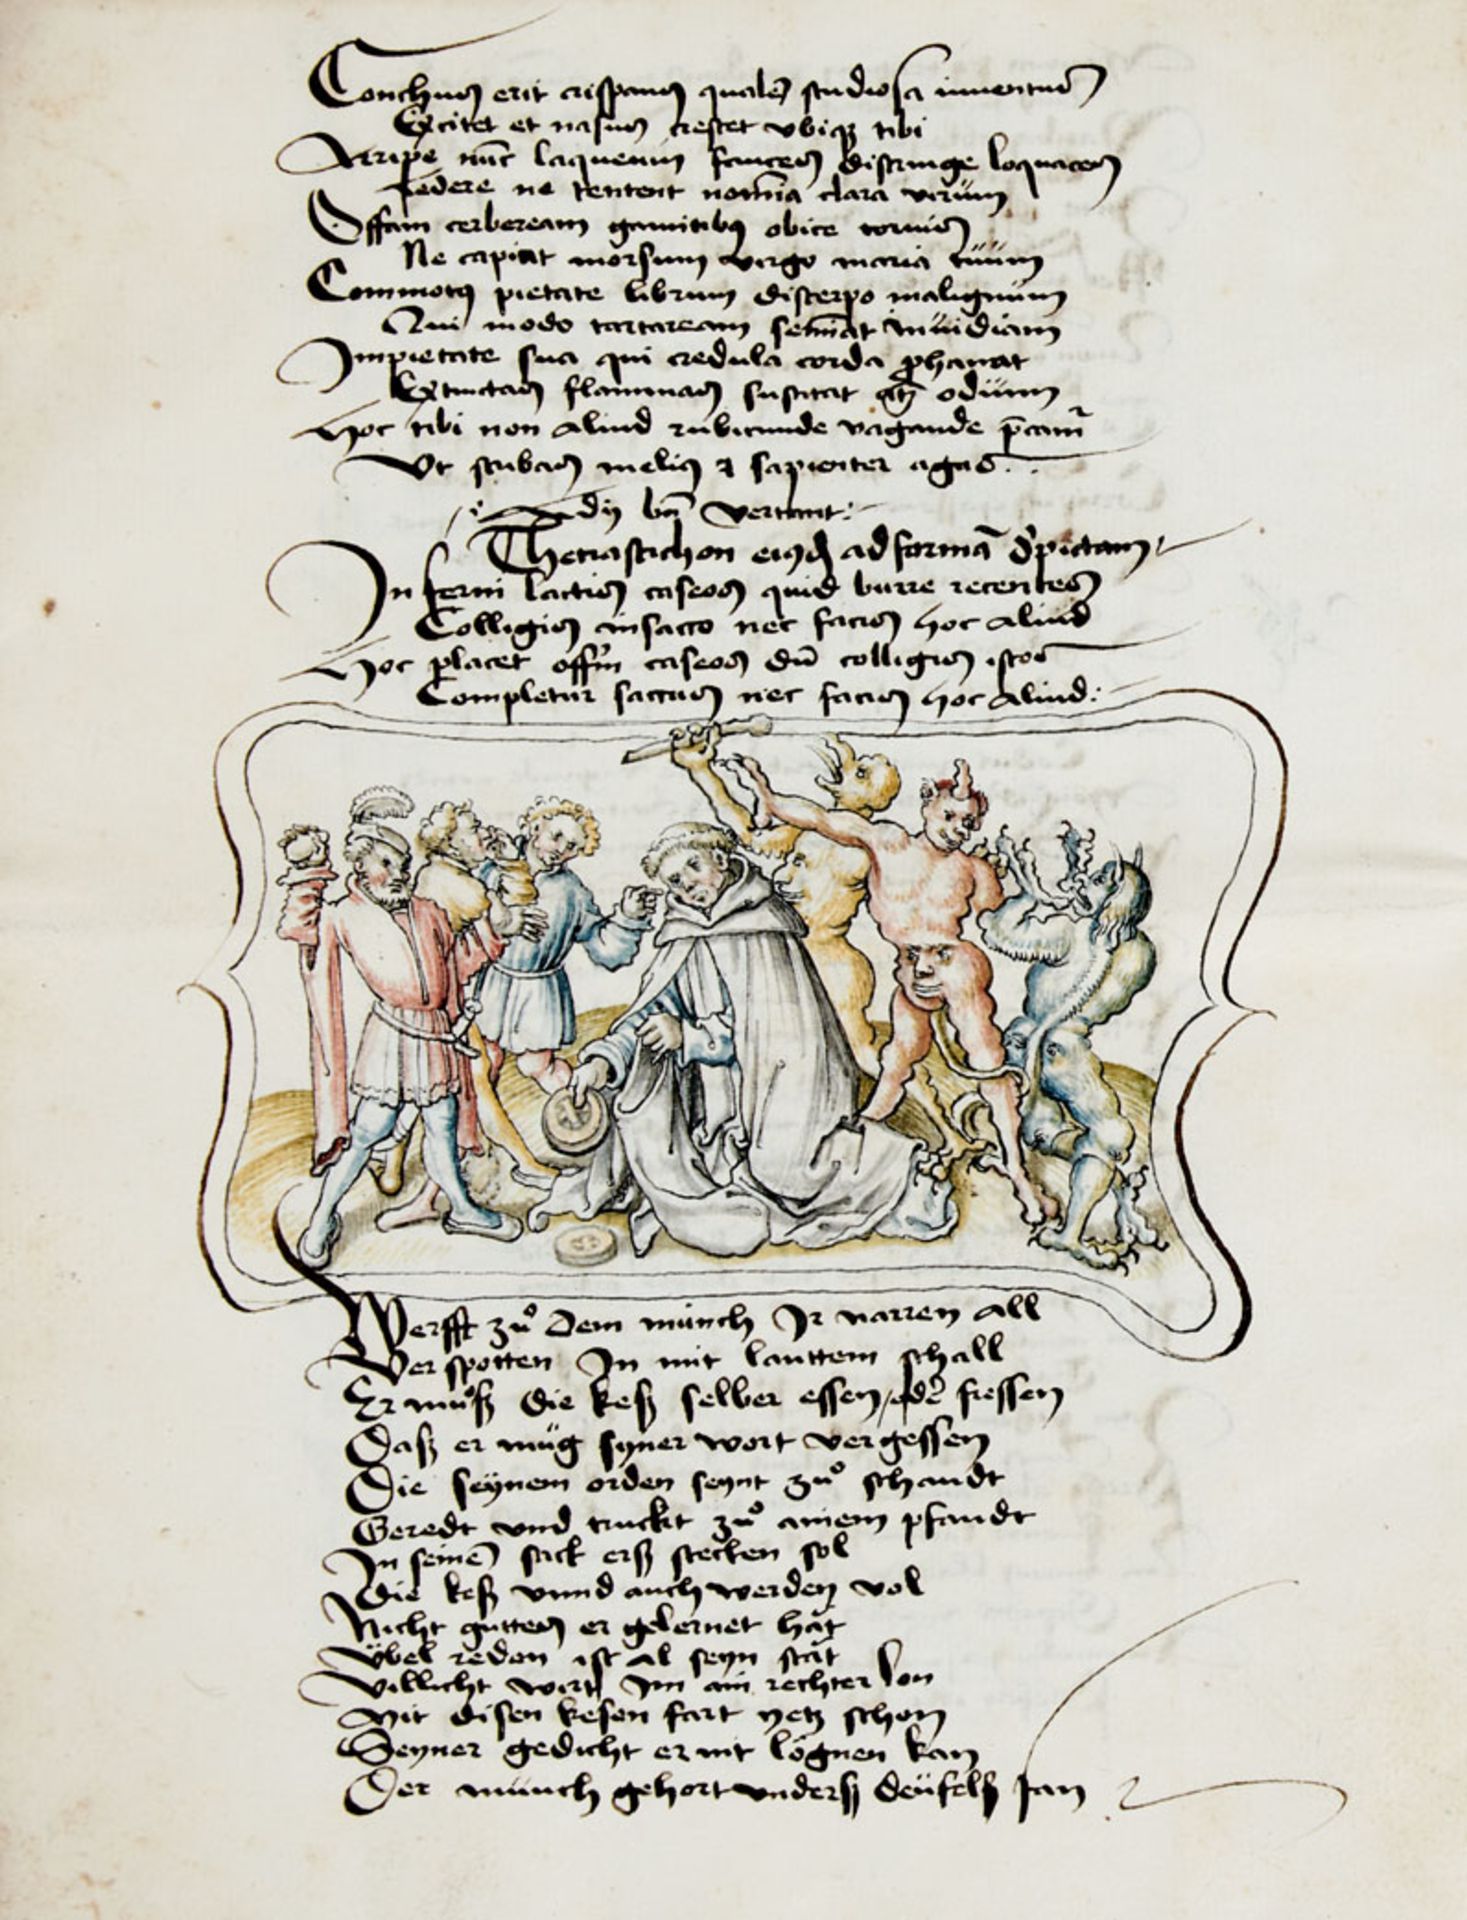 Conchus erit crispans quales studiosa iuuentus
Excitet et nasus crescet vbiqȝ tibi
Arripe nūc laqueum fauces distringe loquaces
Ledere ne tentent nomīa clara virum
Offam cerbeream gannitibꝰ obice toruis
Ne capiat morsum virgo maria tuum
Commotꝰ pietate librum discerpo malignum
Qui modo tartaream semīat inuidiam
Impietate sua qui credula corda ꝓphanat
Extinctas flammas suscitat odium
Hoc tibi non aliud rubicunde vagande p̄cam̄
Vt scribas meliꝰ ⁊ sapienter agas
dij bn̄ vertant:
Thetrastichon eiusdē ad formā depictam
In ferni lactis caseos quid burre recentes
Colligis in sacco nec facis hoc aliud
Hoc placet offm̄ caseos dū colligis istos
Completur saccus nec facis hoc aliud:
Werfft zů dem münch Ir narren all
Verspotten In mit lauttem schall
Er můß die keß selber essen/odē fressen
Daß er müg syner wort vergessen
Die seynem orden seynt zů schandt
Geredt vnd truckt zů ainem pfandt
In seinē sack erß stecken sol
die keß vnnd auch werden vol
Nicht guttes er gelernet hat
Vbel reden ist al seyn stat
Villicht wirt Im ain rechter lon
Mit disen kesen fart yetz schon
Seyner gedicht er nit lögnen kan
Der münch gehort vnderß deüfelß fan